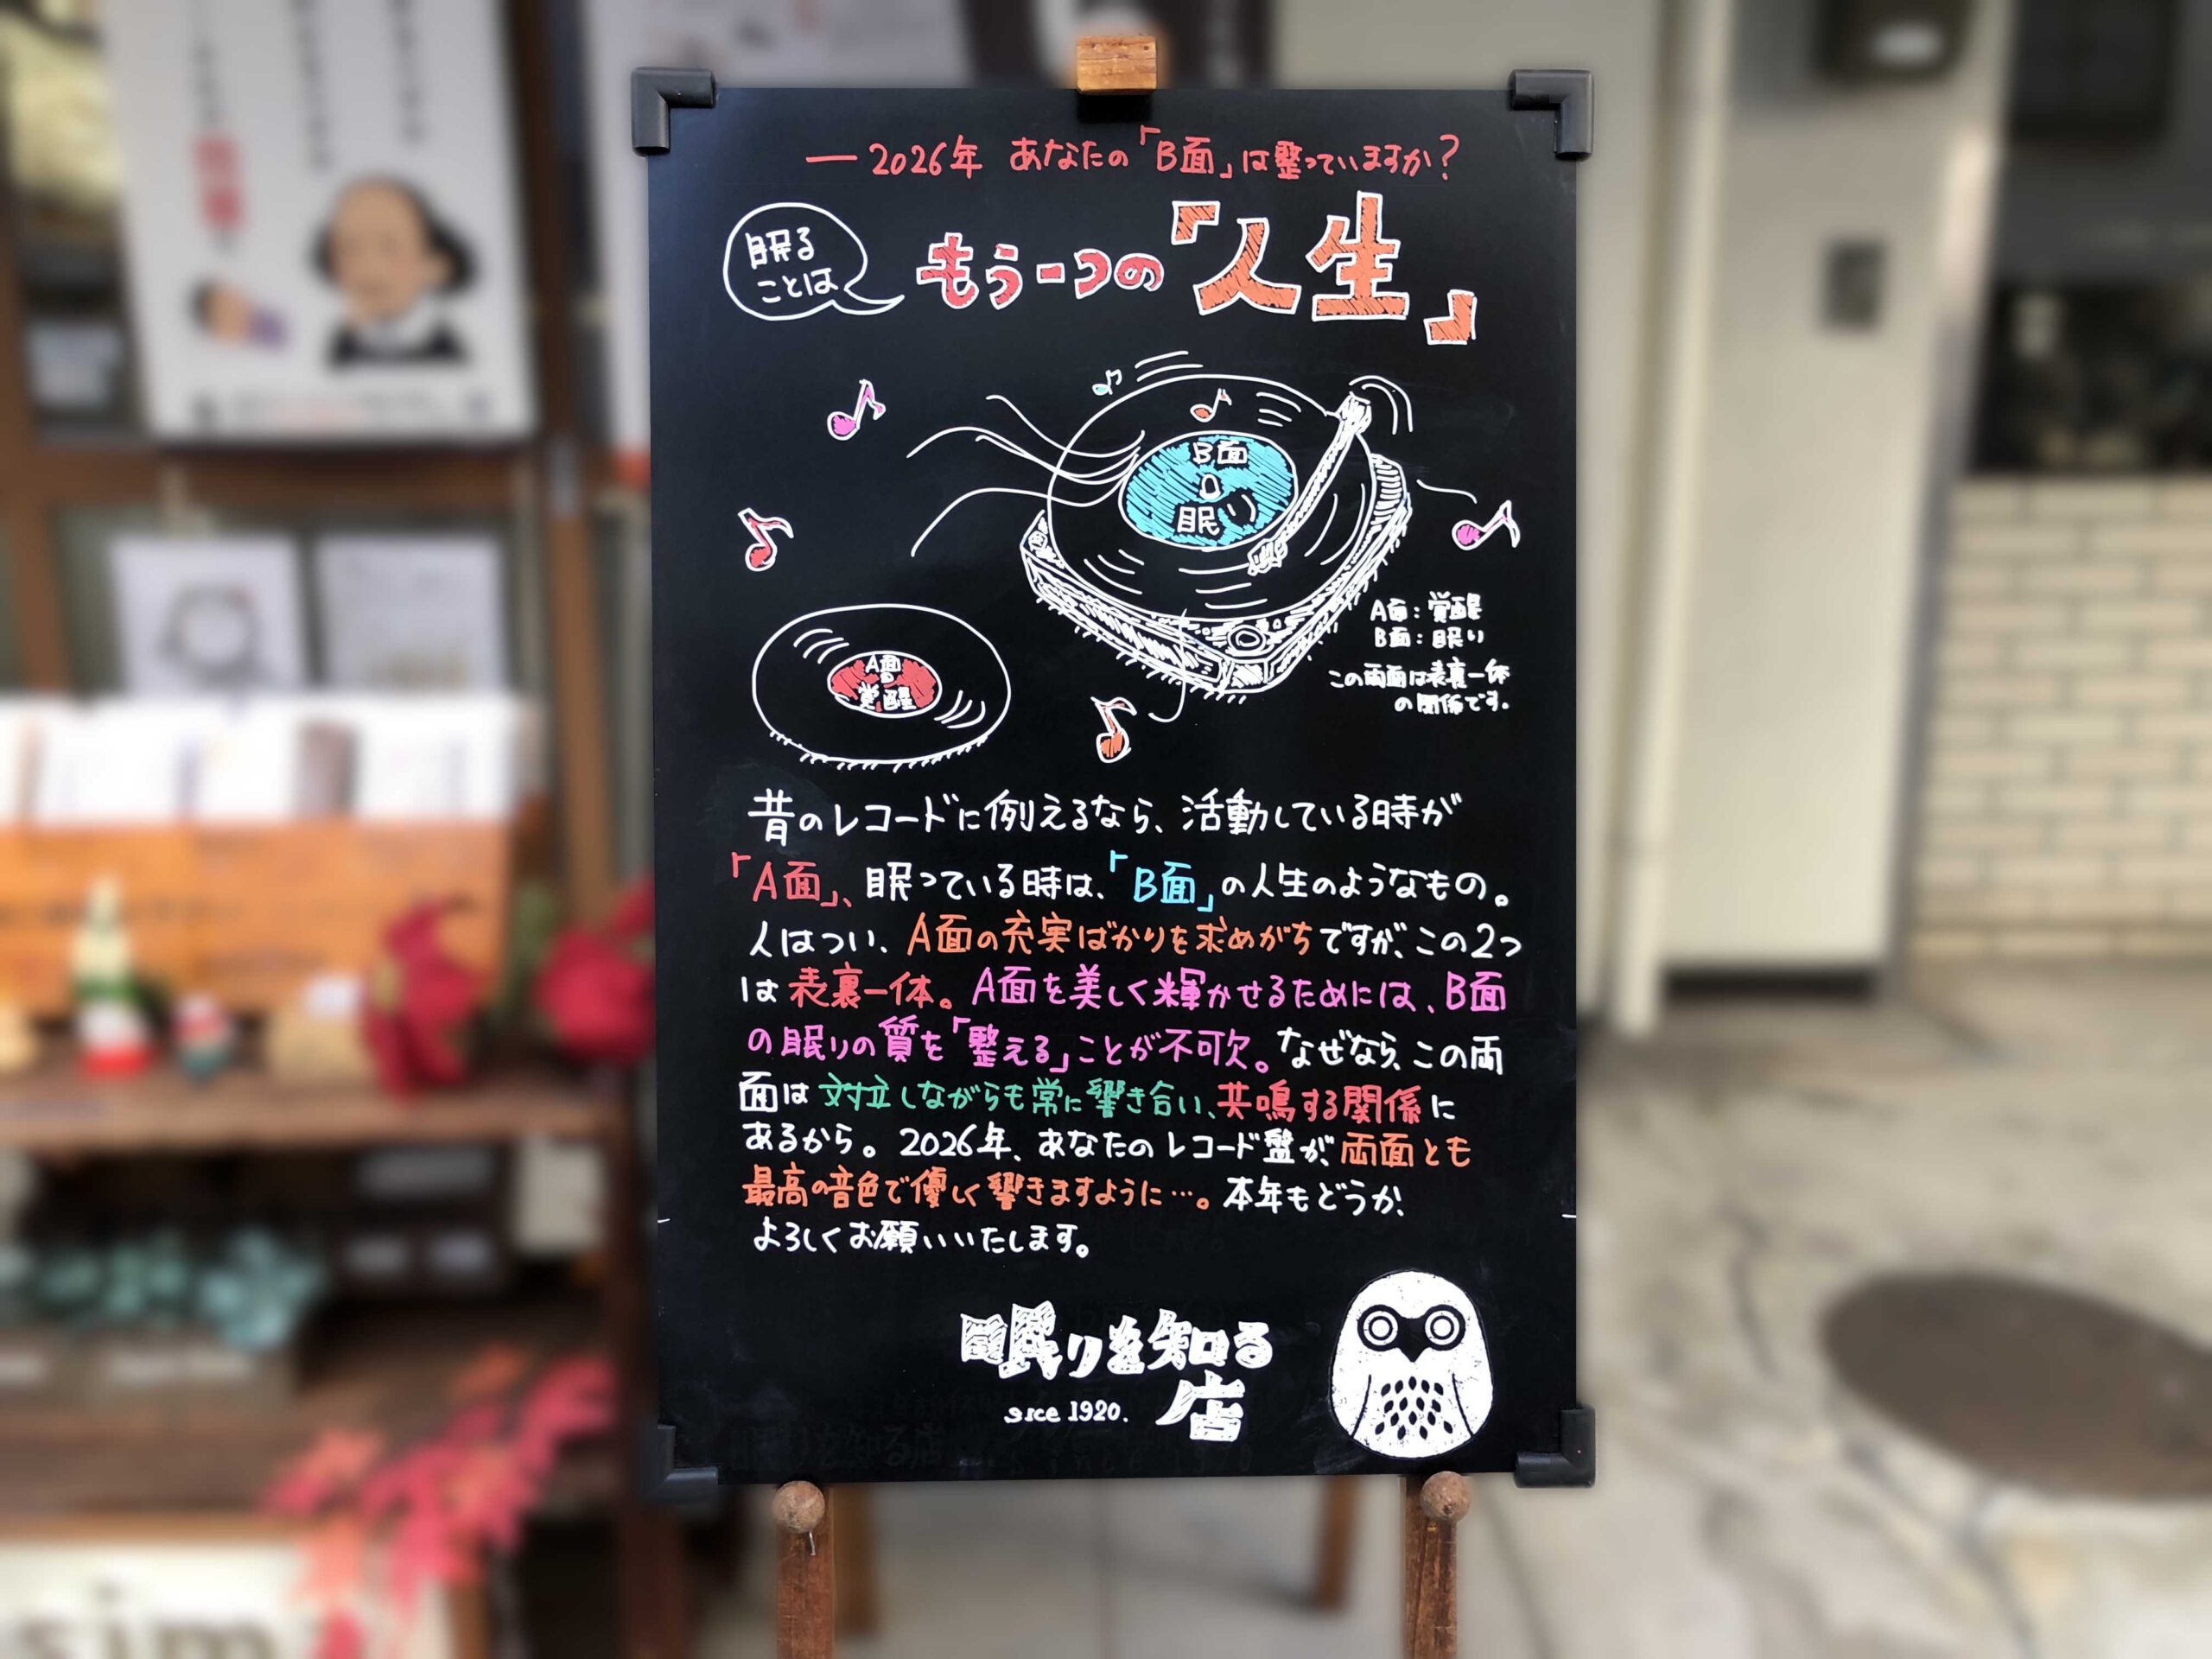 ー2026年 あなたの「B面」は整っていますか?
眠る
ことは
もう一つの「人生」
B面
眠り
A面:覚醒
B面:眠り
この両面は表裏一体
の関係です。
A面
覚醒
昔のレコードに例えるなら、活動している時が
「A面」、眠っている時は、「B面」の人生のようなもの。
人はつい、A面の充実ばかりを求めがちですが、この2つ
は表裏一体。A面を美しく輝かせるためには、B面
の眠りの質を「整える」ことが不可欠。なぜなら、この両
面は対立しながらも常に響き合い、共鳴する関係に
あるから。2026年、あなたのレコード盤が、両面とも
最高の音色で優しく響きますように…。本年もどうか、
よろしくお願いいたします。
眠りを知る
店
since 1920.
sim